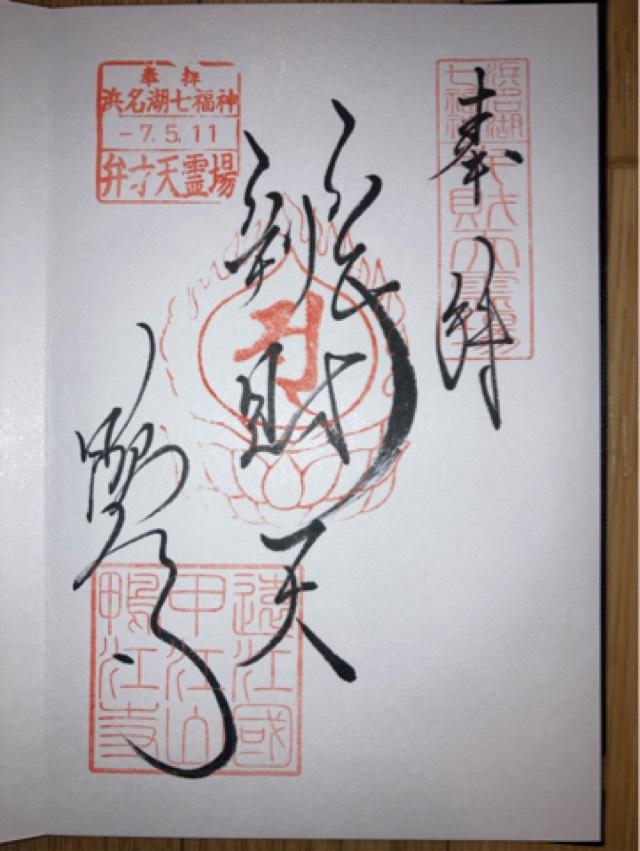 奉拝
浜名湖七福神
弁財天霊場
辨財天
鴨江寺
奉拝
浜名湖七福神
-7.5.11
弁才天霊場
遠江國
甲江山
鴨江寺